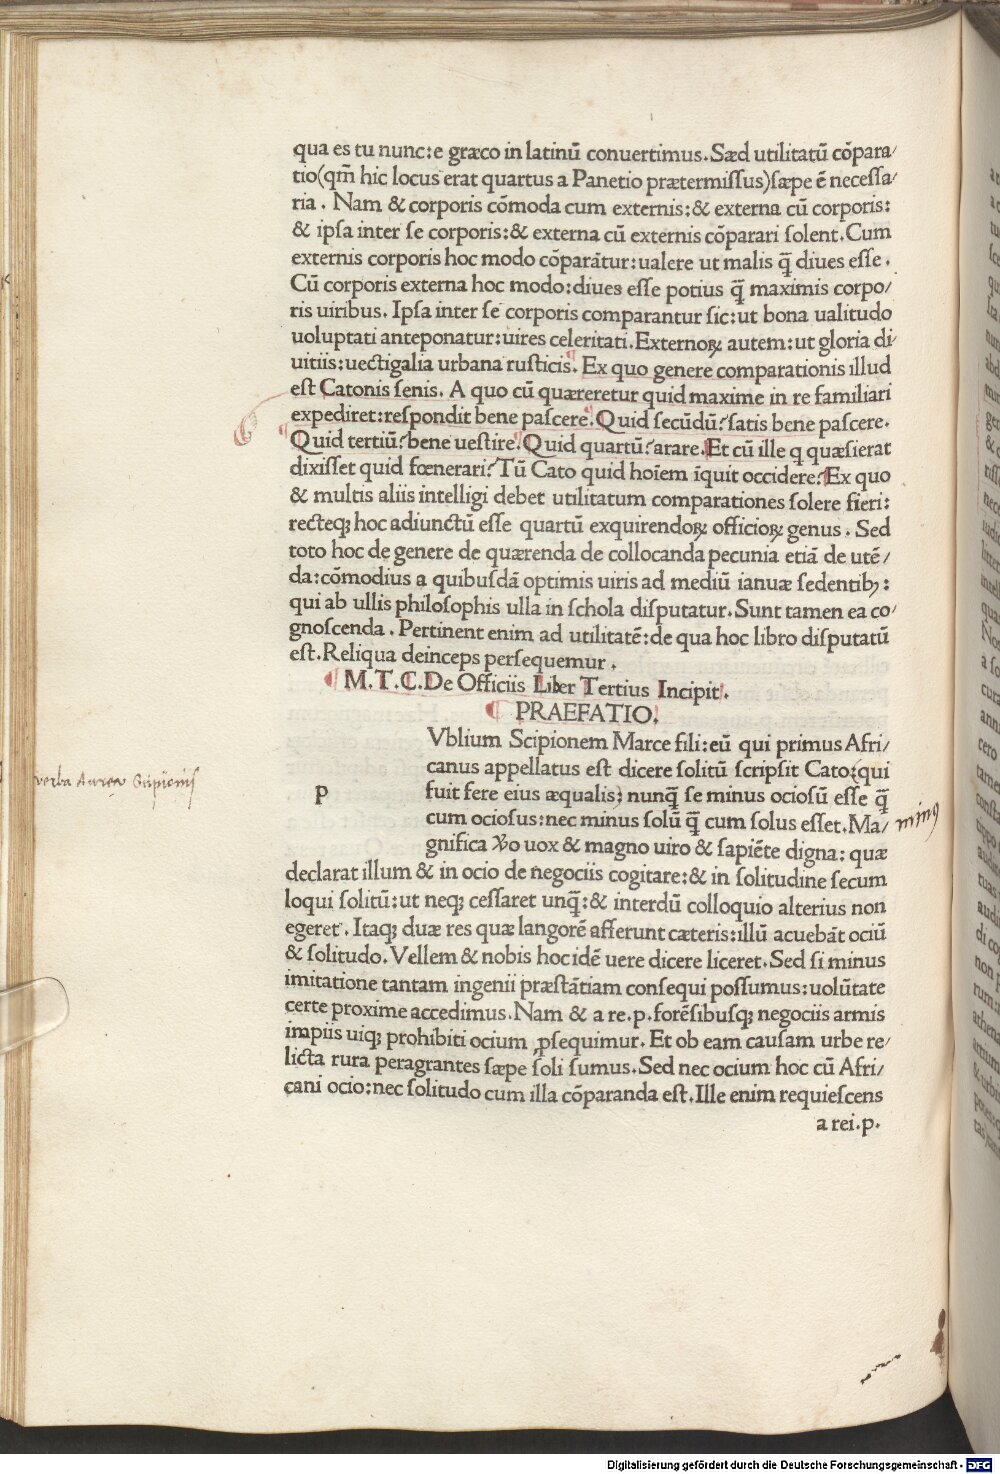 qua es tu nunc:e græco in latinū conuertimus.Sæd utilitatū cōpara/
tio(qm̄ hic locus erat quartus a Panetio prætermiſſus)ſæpe ē neceſſa/
ria . Nam & corporis cōmoda cum externis:& externa cū corporis:
& ipſa inter ſe corporis:& externa cū externis cōparari ſolent.Cum
externis corporis hoc modo cōparātur:ualere ut malis q̄ diues eſſe .
Cū corporis externa hoc modo:diues eſſe potius q̄ maximis corpo/
ris uiribus. Ipſa inter ſe corporis comparantur ſic:ut bona ualitudo
uoluptati anteponatur:uires celeritati.Externoꝝ autem:ut gloria di/
uitiis:uectigalia urbana ruſticis. Ex quo genere comparationis illud
eſt Catonis ſenis. A quo cū quæreretur quid maxime in re familiari
expediret:reſpondit bene paſcere. Quid ſecūdū?ſatis bene paſcere.
Quid tertiū?bene ueſtire. Quid quartū?arare. Et cū ille q quæſierat
dixiſſet quid fœnerari?Tū Cato quid hoīem īquit occidere?Ex quo
& multis aliis intelligi debet utilitatum comparationes ſolere fieri:
recteqꝫ hoc adiunctū eſſe quartū exquirendoꝝ officioꝝ genus . Sed
toto hoc de genere de quærenda de collocanda pecunia etiā de utē/
da:cōmodius a quibuſdā optimis uiris ad mediū ianuæ ſedentibꝫ:
qui ab ullis philoſophis ulla in ſchola diſputatur.Sunt tamen ea co/
gnoſcenda . Pertinent enim ad utilitatē:de qua hoc libro diſputatū
eſt.Reliqua deinceps perſequemur .
M.T.C.De Officiis Liber Tertius Incipit.
PRAEFATIO.
Vblium Scipionem Marce fili:eū qui primus Afri/
canus appellatus eſt dicere ſolitū ſcripſit Cato:(qui
verba Aurea Scipionis
p
fuit fere eius æqualis) nunq̄ ſe minus ocioſū eſſe q̄
cum ocioſus:nec minus ſolū q̄ cum ſolus eſſet.Ma/
minus
gnifica ꝟo uox & magno uiro & ſapiēte digna: quæ
declarat illum & in ocio de negociis cogitare:& in ſolitudine ſecum
loqui ſolitū:ut neqꝫ ceſſaret unq̄:& interdū colloquio alterius non
egeret . Itaqꝫ duæ res quæ langorē afferunt cæteris:illū acuebāt ociū
& ſolitudo.Vellem & nobis hoc idē uere dicere liceret.Sed ſi minus
imitatione tantam ingenii præſtātiam conſequi poſſumus:uolūtate
certe proxime accedimus.Nam & a re.p.forēſibuſqꝫ negociis armis
impiis uiqꝫ prohibiti ocium ꝓſequimur. Et ob eam cauſam urbe re/
licta rura peragrantes ſæpe ſoli ſumus.Sed nec ocium hoc cū Afri/
cani ocio:nec ſolitudo cum illa cōparanda eſt.Ille enim requieſcens
a rei.p.
Digitalisierung gefördert durch die Deutsche Forschungsgemeinschaft - DFG